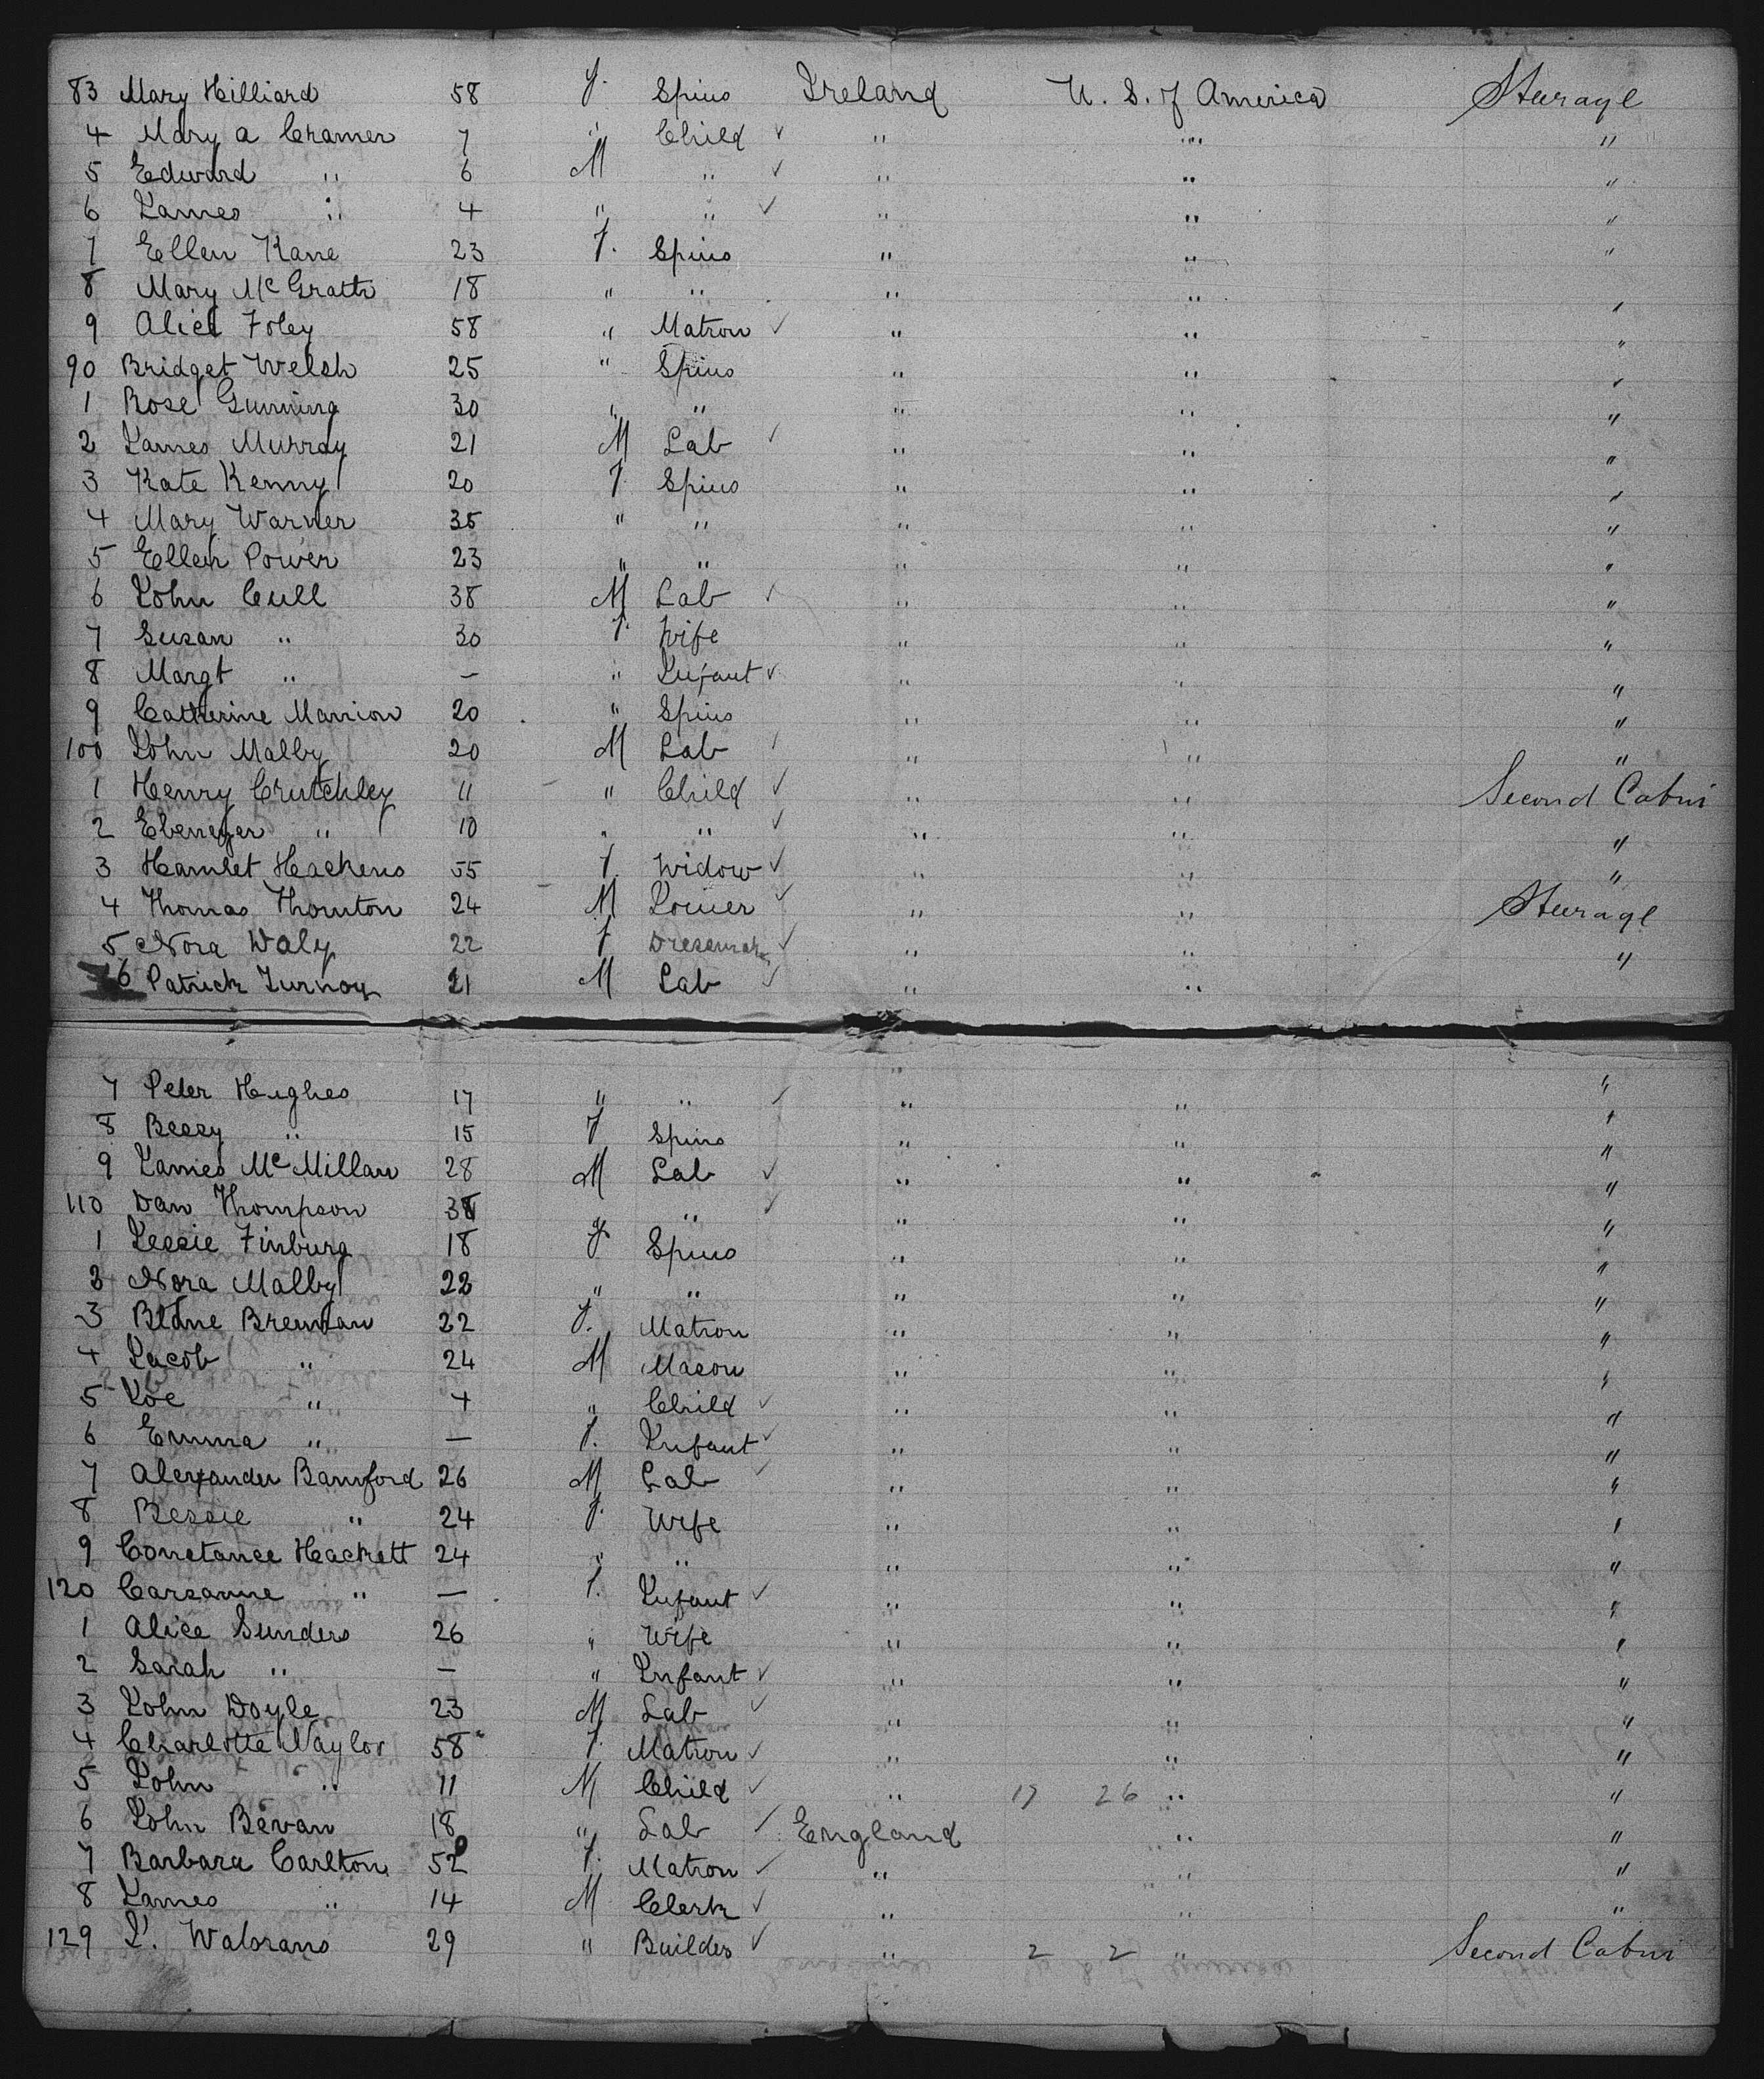 83 Mary Hilliard 58 f. Spins Ireland U. S. of America Steerage
4 Mary A Cramer 7 " Child ✓ " " "
5 Edward " 6 M " ✓ " " "
6 James " 4 " " ✓ " " "
7 Ellen Kane 23 f. Spins " " "
8 Mary McGrath 18 " " " " "
9 Alice Foley 58 " Matron ✓ " " "
90 Bridget Welsh 25 " Spins " " "
1 Rose Gunning 30 " " " " "
2 James Murray 21 M Lab ✓ " " "
3 Kate Kenny 20 f Spins " " "
4 Mary Warner 35 " " " " "
5 Ellen Power 23 " " " " "
6 John Cull 38 M Lab ✓ " " "
7 Susan " 30 f. Wife " " "
8 Margt " — " Infant ✓ " " "
9 Catherine Mannion 20 " Spins " " "
100 John Malby 20 M Lab ✓ " " "
1 Henry Crutchley 11 " Child ✓ " " Second Cabin
2 Ebenezer " 10 " " ✓ " " "
3 Hamlet Hackens 55 f. Widow ✓ " " "
4 Thomas Thornton 24 M Joiner ✓ " " Steerage
5 Nora Daly 22 f Dressmaker ✓ " " "
6 Patrick Turnoy 21 M Lab ✓ " "
7 Peter Hughes 17 " " ✓ " " "
8 Bessy " 15 f Spins " " "
9 James McMillan 28 M Lab ✓ " " "
110 Dan Thompson 38 " ✓ " " "
1 Jessie Finburg 18 f Spins " " "
2 Nora Malby 22 " " " " "
3 Brennan 22 f. Matron " " "
4 Jacob " 24 M Mason " " "
5 Joe " 4 " Child ✓ " " "
6 Emma " — f. Infant ✓ " " "
7 Alexander Bamford 26 M Lab ✓ " " "
8 Bessie " 24 f. Wife " " "
9 Constance Hackett 24 " " " " "
120 Carsanne " — f. Infant ✓ " " "
1 Alice Sunders 26 " Wife " " "
2 Sarah " — " Infant ✓ " " "
3 John Doyle 23 M Lab ✓ " " "
4 Charlotte Naylor 58 f. Matron ✓ " " "
5 John " 11 M Child ✓ " 17 26 " "
6 John Bevan 18 " Lab ✓ England " "
7 Barbara Carlton 52 f. Matron ✓ " " "
8 James " 14 M Clerk ✓ " " "
129 J. Walorans 29 " Builder ✓ " 2 2 " Second Cabin